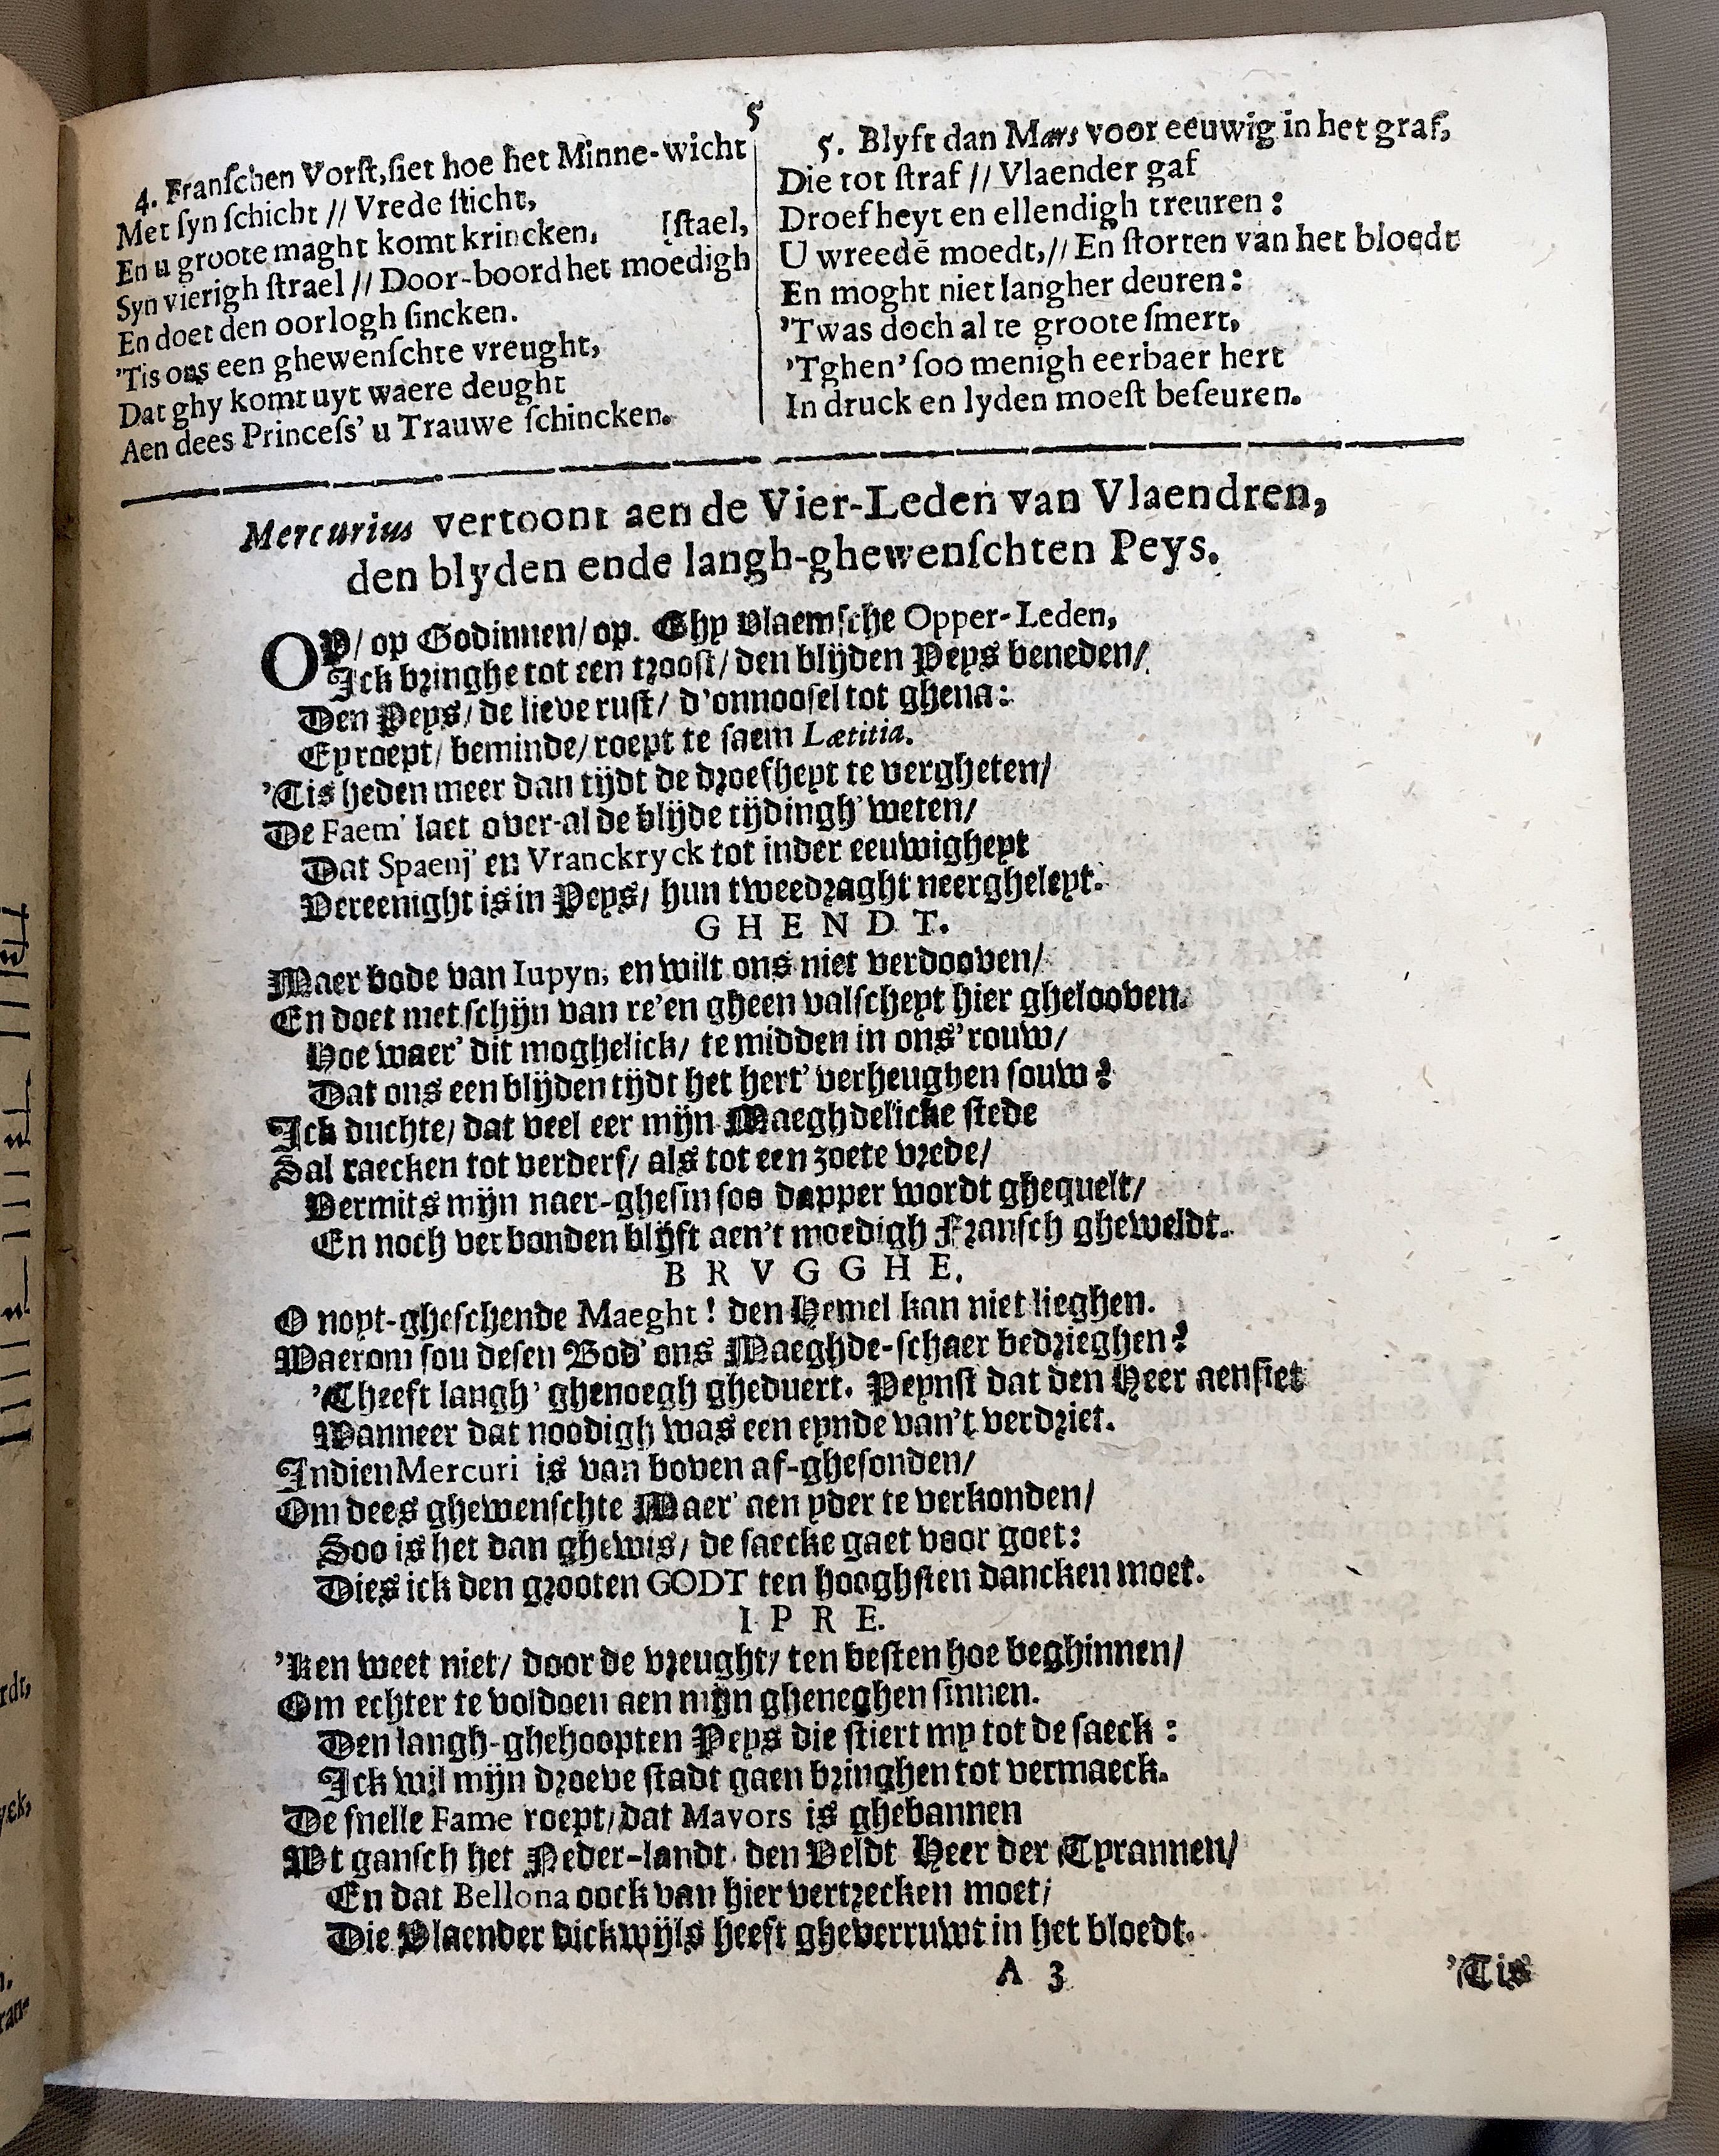 5
4. Franſchen Vorſt, ſiet hoe het Minne-wicht
Met ſyn ſchicht // Vrede ſticht,
En u groote maght komt krincken, [ſtael,
Syn vierigh ſtrael // Door-boord het moedigh
En doet den oorlogh ſincken.
'Tis ons een ghewenſchte vreught,
Dat ghy komt uyt waere deught
Aen dees Princeſs' u Trauwe ſchincken.
5. Blyft dan Mars voor eeuwig in het graf,
Die tot ſtraf // Vlaender gaf
Droefheyt en ellendigh treuren :
U wreedē moedt, // En ſtorten van het bloedt
En moght niet langher deuren :
'Twas doch al te groote ſmert,
'Tghen' ſoo menigh eerbaer hert
In druck en lyden moeſt beſeuren.
Mercurius vertoont aen de Vier-Leden van Vlaendren,
den blyden ende langh-ghewenſchten Peys.
OP/ op Godinnen/ op. Ghy Vlaemſche Opper-Leden,
Ick bringhe tot een trooſt/ den blijden Peys beneden/
Den Peys/ de lieve ruſt/ d'onnooſel tot ghena:
Ey roept/ beminde/ roept te ſaem Lætitia.
'Tis heden meer dan tijdt de droefheyt te vergheten/
De Faem' laet over-al de blijde tijdingh' weten/
Dat Spaenj' en Vranckryck tot inder eeuwigheyt
Vereenight is in Peys/ hun tweedraght neergheleyt.
GHENDT.
Maer bode van Iupyn, en wilt ons niet verdooven/
En doet met ſchijn van re'en gheen valſcheyt hier ghelooven.
Hoe waer' dit moghelick/ te midden in ons' rouw/
Dat ons een blijden tijdt het hert' verheughen ſouw?
Ick duchte/ dat veel eer mijn Maeghdelicke ſtede
Sal raecken tot verderf/ als tot een zoete vrede/
Vermits mijn naer-gheſin ſoo dapper wordt ghequelt/
En noch verbonden blijft aen't moedigh Franſch gheweldt.
BRVGGHE.
O noyt-gheſchende Maeght ! den Hemel kan niet lieghen.
Waerom ſou deſen Bod' ons Maeghde-ſchaer bedrieghen?
'Theeft langh' ghenoegh gheduert. Peynſt dat den Heer aenſiet
Wanneer dat noodigh was een eynde van't verdriet.
Indien Mercuri is van boven af-gheſonden/
Om dees ghewenſchte Maer' aen yder te verkonden/
Soo is het dan ghewis/ de ſaecke gaet voor goet:
Dies ick den grooten GODT ten hooghſten dancken moet.
IPRE.
'Ken weet niet/ door de vreught/ ten beſten hoe beghinnen/
Om echter te voldoen aen mijn gheneghen ſinnen.
Den langh-ghehoopten Peys die ſtiert my tot de ſaeck :
Ick wil mijn droeve ſtadt gaen bringhen tot vermaeck.
De ſnelle Fame roept/ dat Mavors is ghebannen
Wt ganſch het Neder-landt den Veldt Heer der Tyrannen/
En dat Bellona oock van hier vertrecken moet/
Die Vlaender dickwijls heeft gheverruwt in het bloedt.
A 3
'Tis